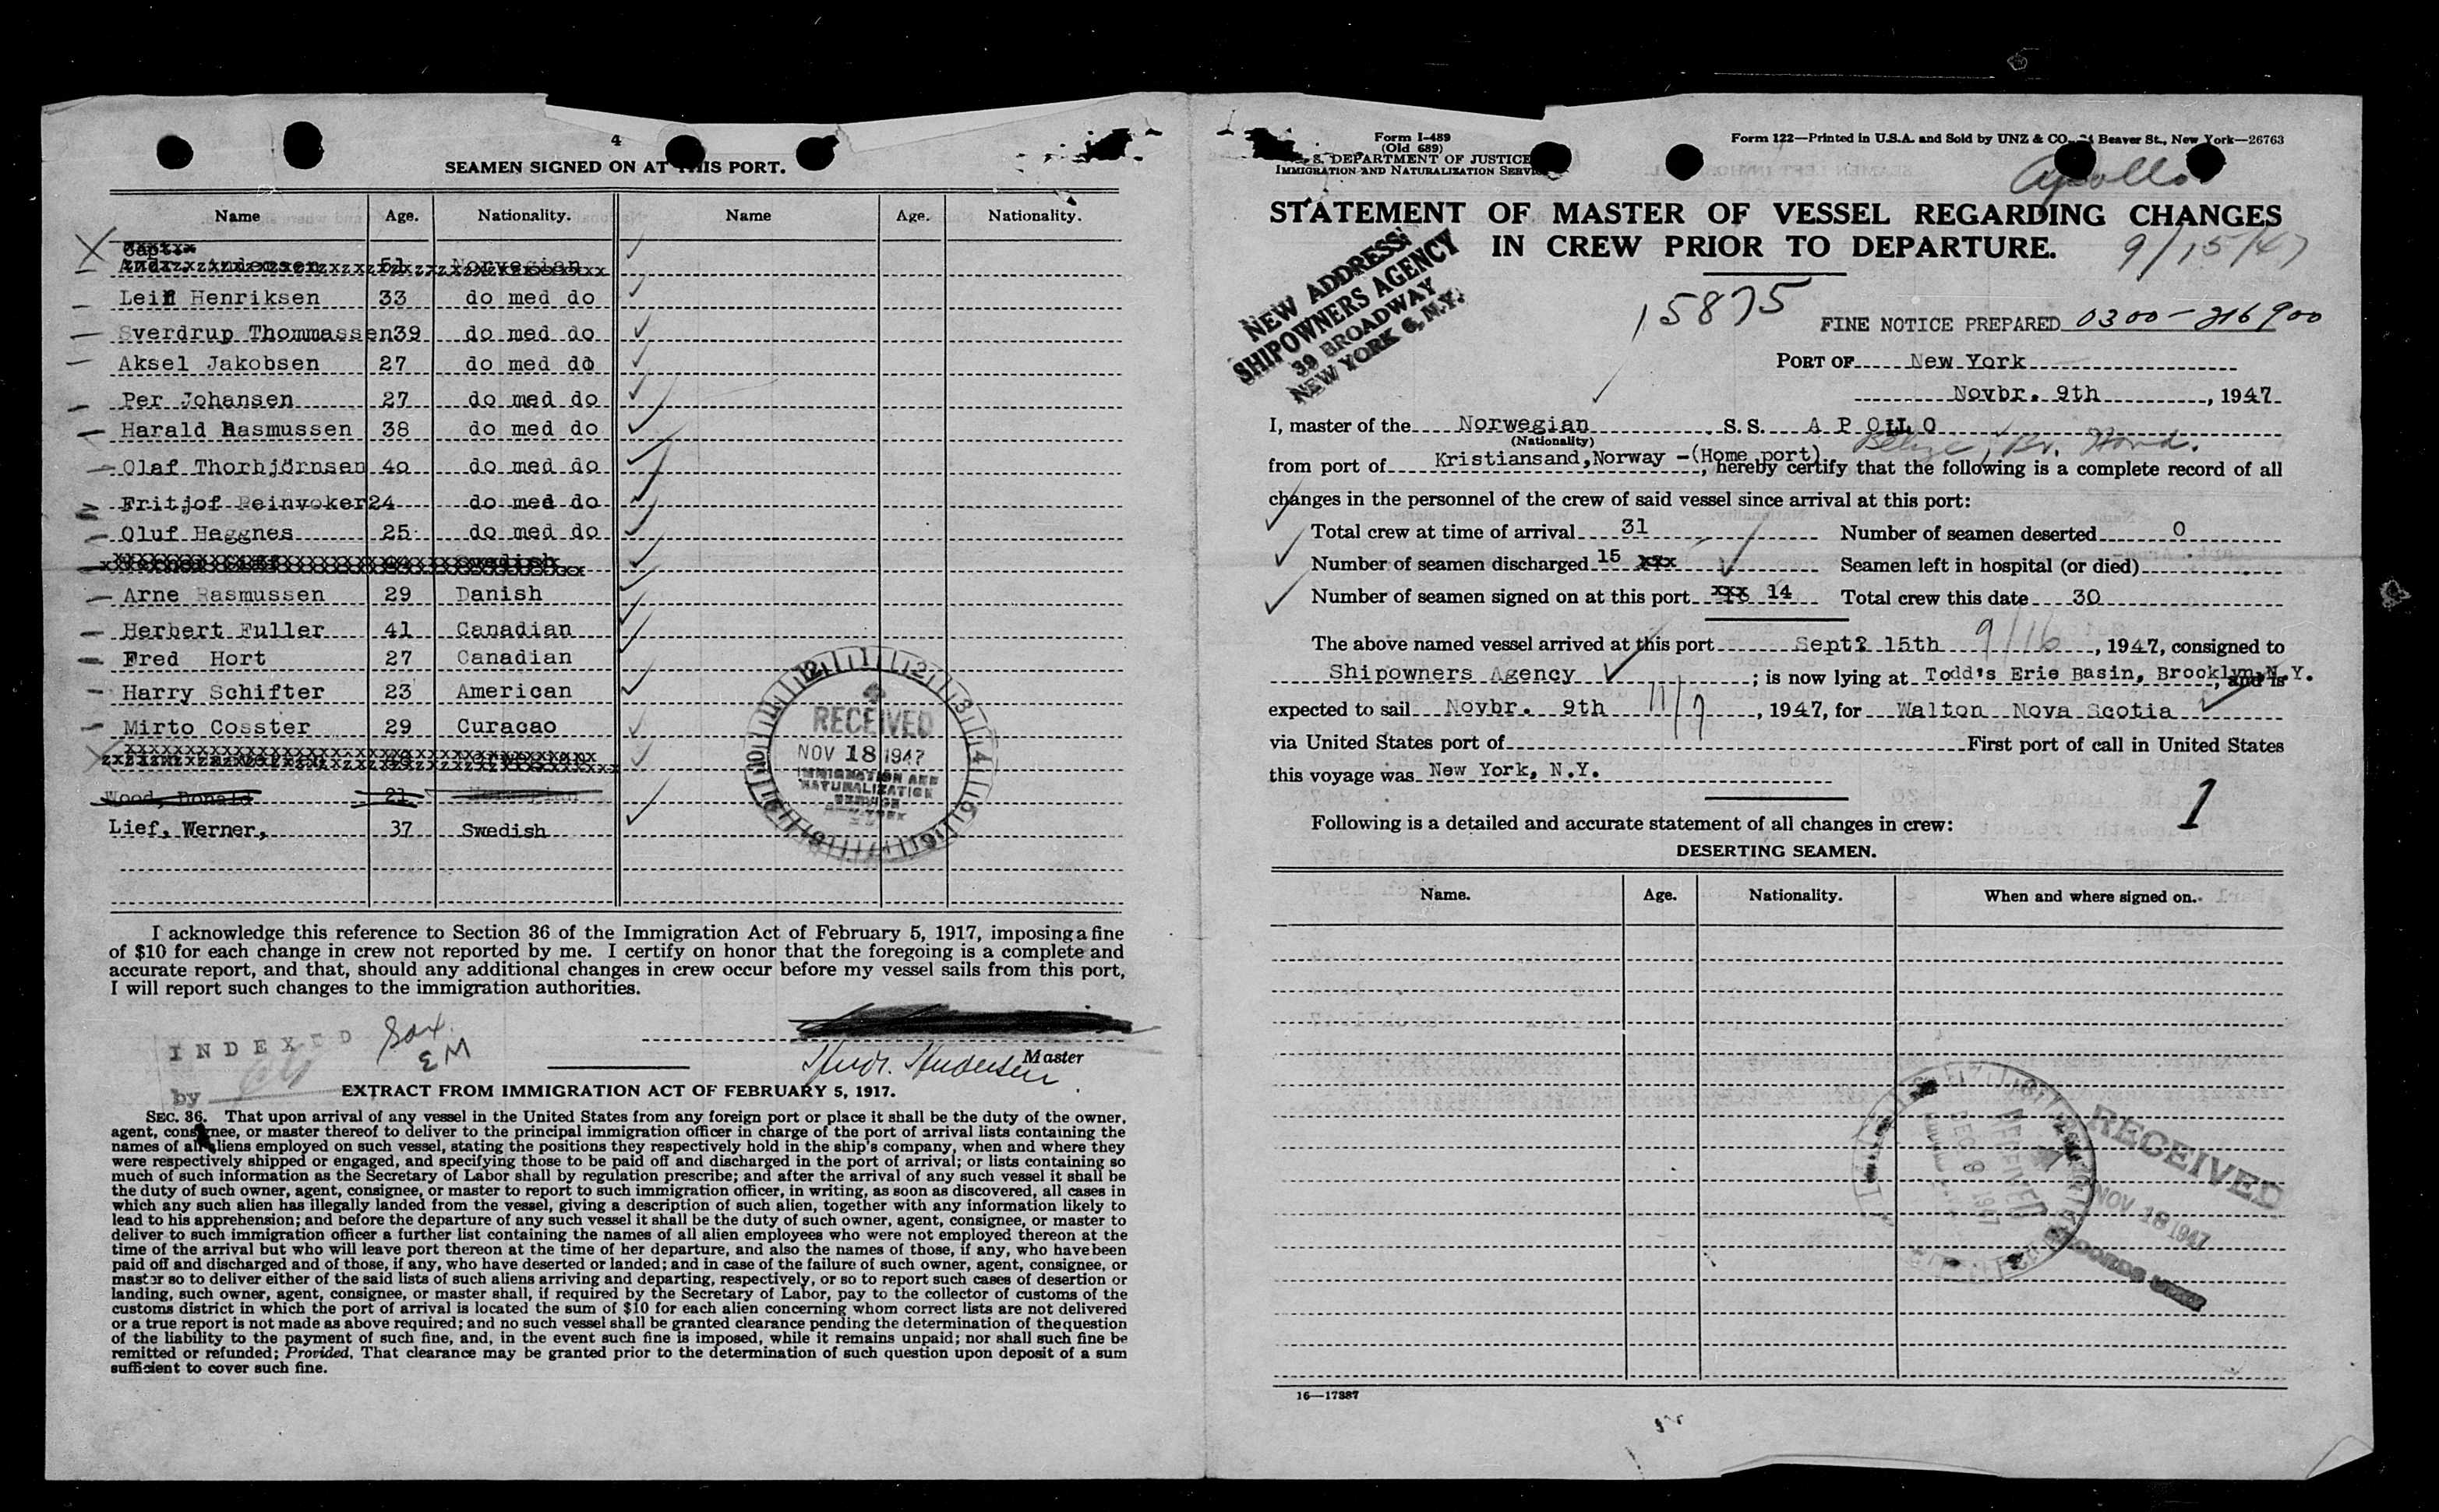 4
SEAMEN SIGNED ON AT THIS PORT.
Name Age. Nationality. Name Age. Nationality.
Capt.
Andr. Andersen 51 Norwegian
Leif Henriksen 33 do med do
Sverdrup Thommassen 39 do med do
Aksel Jakobsen 27 do med do
Per Johansen 27 do med do
Harald Rasmussen 38 do med do
Olaf Thorbjörnsen 4o do med do
Fritjof Reinvoker 24 do med do
Oluf Heggnes 25 do med do
Swedish
Arne Rasmussen 29 Danish
Herbert Fuller 41 Canadian
Fred Hort 27 Canadian
Harry Schifter 23 American
Mirto Cosster 29 Curacao
Wood, Donald 21 Norwegian
Lief, Werner, 37 Swedish
RECEIVED
NOV 18 1947
IMMIGRATION AND
NATURALIZATION
SERVICE
NEW YORK
I acknowledge this reference to Section 36 of the Immigration Act of February 5, 1917, imposing a fine
of $10 for each change in crew not reported by me. I certify on honor that the foregoing is a complete and
accurate report, and that, should any additional changes in crew occur before my vessel sails from this port,
I will report such changes to the immigration authorities.
INDEXED
by
EM
Andr. Andersen
Master
EXTRACT FROM IMMIGRATION ACT OF FEBRUARY 5, 1917.
SEC. 36. That upon arrival of any vessel in the United States from any foreign port or place it shall be the duty of the owner,
agent, consignee, or master thereof to deliver to the principal immigration officer in charge of the port of arrival lists containing the
names of all aliens employed on such vessel, stating the positions they respectively hold in the ship's company, when and where they
were respectively shipped or engaged, and specifying those to be paid off and discharged in the port of arrival; or lists containing so
much of such information as the Secretary of Labor shall by regulation prescribe; and after the arrival of any such vessel it shall be
the duty of such owner, agent, consignee, or master to report to such immigration officer, in writing, as soon as discovered, all cases in
which any such alien has illegally landed from the vessel, giving a description of such alien, together with any information likely to
lead to his apprehension; and before the departure of any such vessel it shall be the duty of such owner, agent, consignee, or master to
deliver to such immigration officer a further list containing the names of all alien employees who were not employed thereon at the
time of the arrival but who will leave port thereon at the time of her departure, and also the names of those, if any, who have been
paid off and discharged and of those, if any, who have deserted or landed; and in case of the failure of such owner, agent, consignee, or
master so to deliver either of the said lists of such aliens arriving and departing, respectively, or so to report such cases of desertion or
landing, such owner, agent, consignee, or master shall, if required by the Secretary of Labor, pay to the collector of customs of the
customs district in which the port of arrival is located the sum of $10 for each alien concerning whom correct lists are not delivered
or a true report is not made as above required; and no such vessel shall be granted clearance pending the determination of the question
of the liability to the payment of such fine, and, in the event such fine is imposed, while it remains unpaid; nor shall such fine be
remitted or refunded; Provided, That clearance may be granted prior to the determination of such question upon deposit of a sum
sufficient to cover such fine.
Form I-489
(Old 689)
U. S. DEPARTMENT OF JUSTICE
IMMIGRATION AND NATURALIZATION SERVICE
Form 122—Printed in U.S.A. and Sold by UNZ & CO., 24 Beaver St., New York—26763
Apollo
STATEMENT OF MASTER OF VESSEL REGARDING CHANGES
IN CREW PRIOR TO DEPARTURE.
9/15/47
NEW ADDRESS:
SHIPOWNERS AGENCY
39 BROADWAY
NEW YORK 6, N.Y.
15875
FINE NOTICE PREPARED 0300-216900
PORT OF New York
Novbr. 9th, 1947
I, master of the Norwegian S.S. A P O L L O
(Nationality)
Belize, Br. Hond.
from port of Kristiansand, Norway -(Home port), hereby certify that the following is a complete record of all
changes in the personnel of the crew of said vessel since arrival at this port:
Total crew at time of arrival 31 Number of seamen deserted 0
Number of seamen discharged 15 xxx Seamen left in hospital (or died)
Number of seamen signed on at this port xxx 14 Total crew this date 30
The above named vessel arrived at this port Sept? 15th 9/16, 1947, consigned to
Shipowners Agency; is now lying at Todd's Erie Basin, Brooklyn, N.Y., and is
expected to sail Novbr. 9th 11/9, 1947, for Walton Nova Scotia
via United States port of First port of call in United States
this voyage was New York, N.Y.
1
Following is a detailed and accurate statement of all changes in crew:
DESERTING SEAMEN.
Name. Age. Nationality. When and where signed on.
RECEIVED
DEC 9 1947
RECEIVED
NOV 18 1947
RECORDS
16—17887